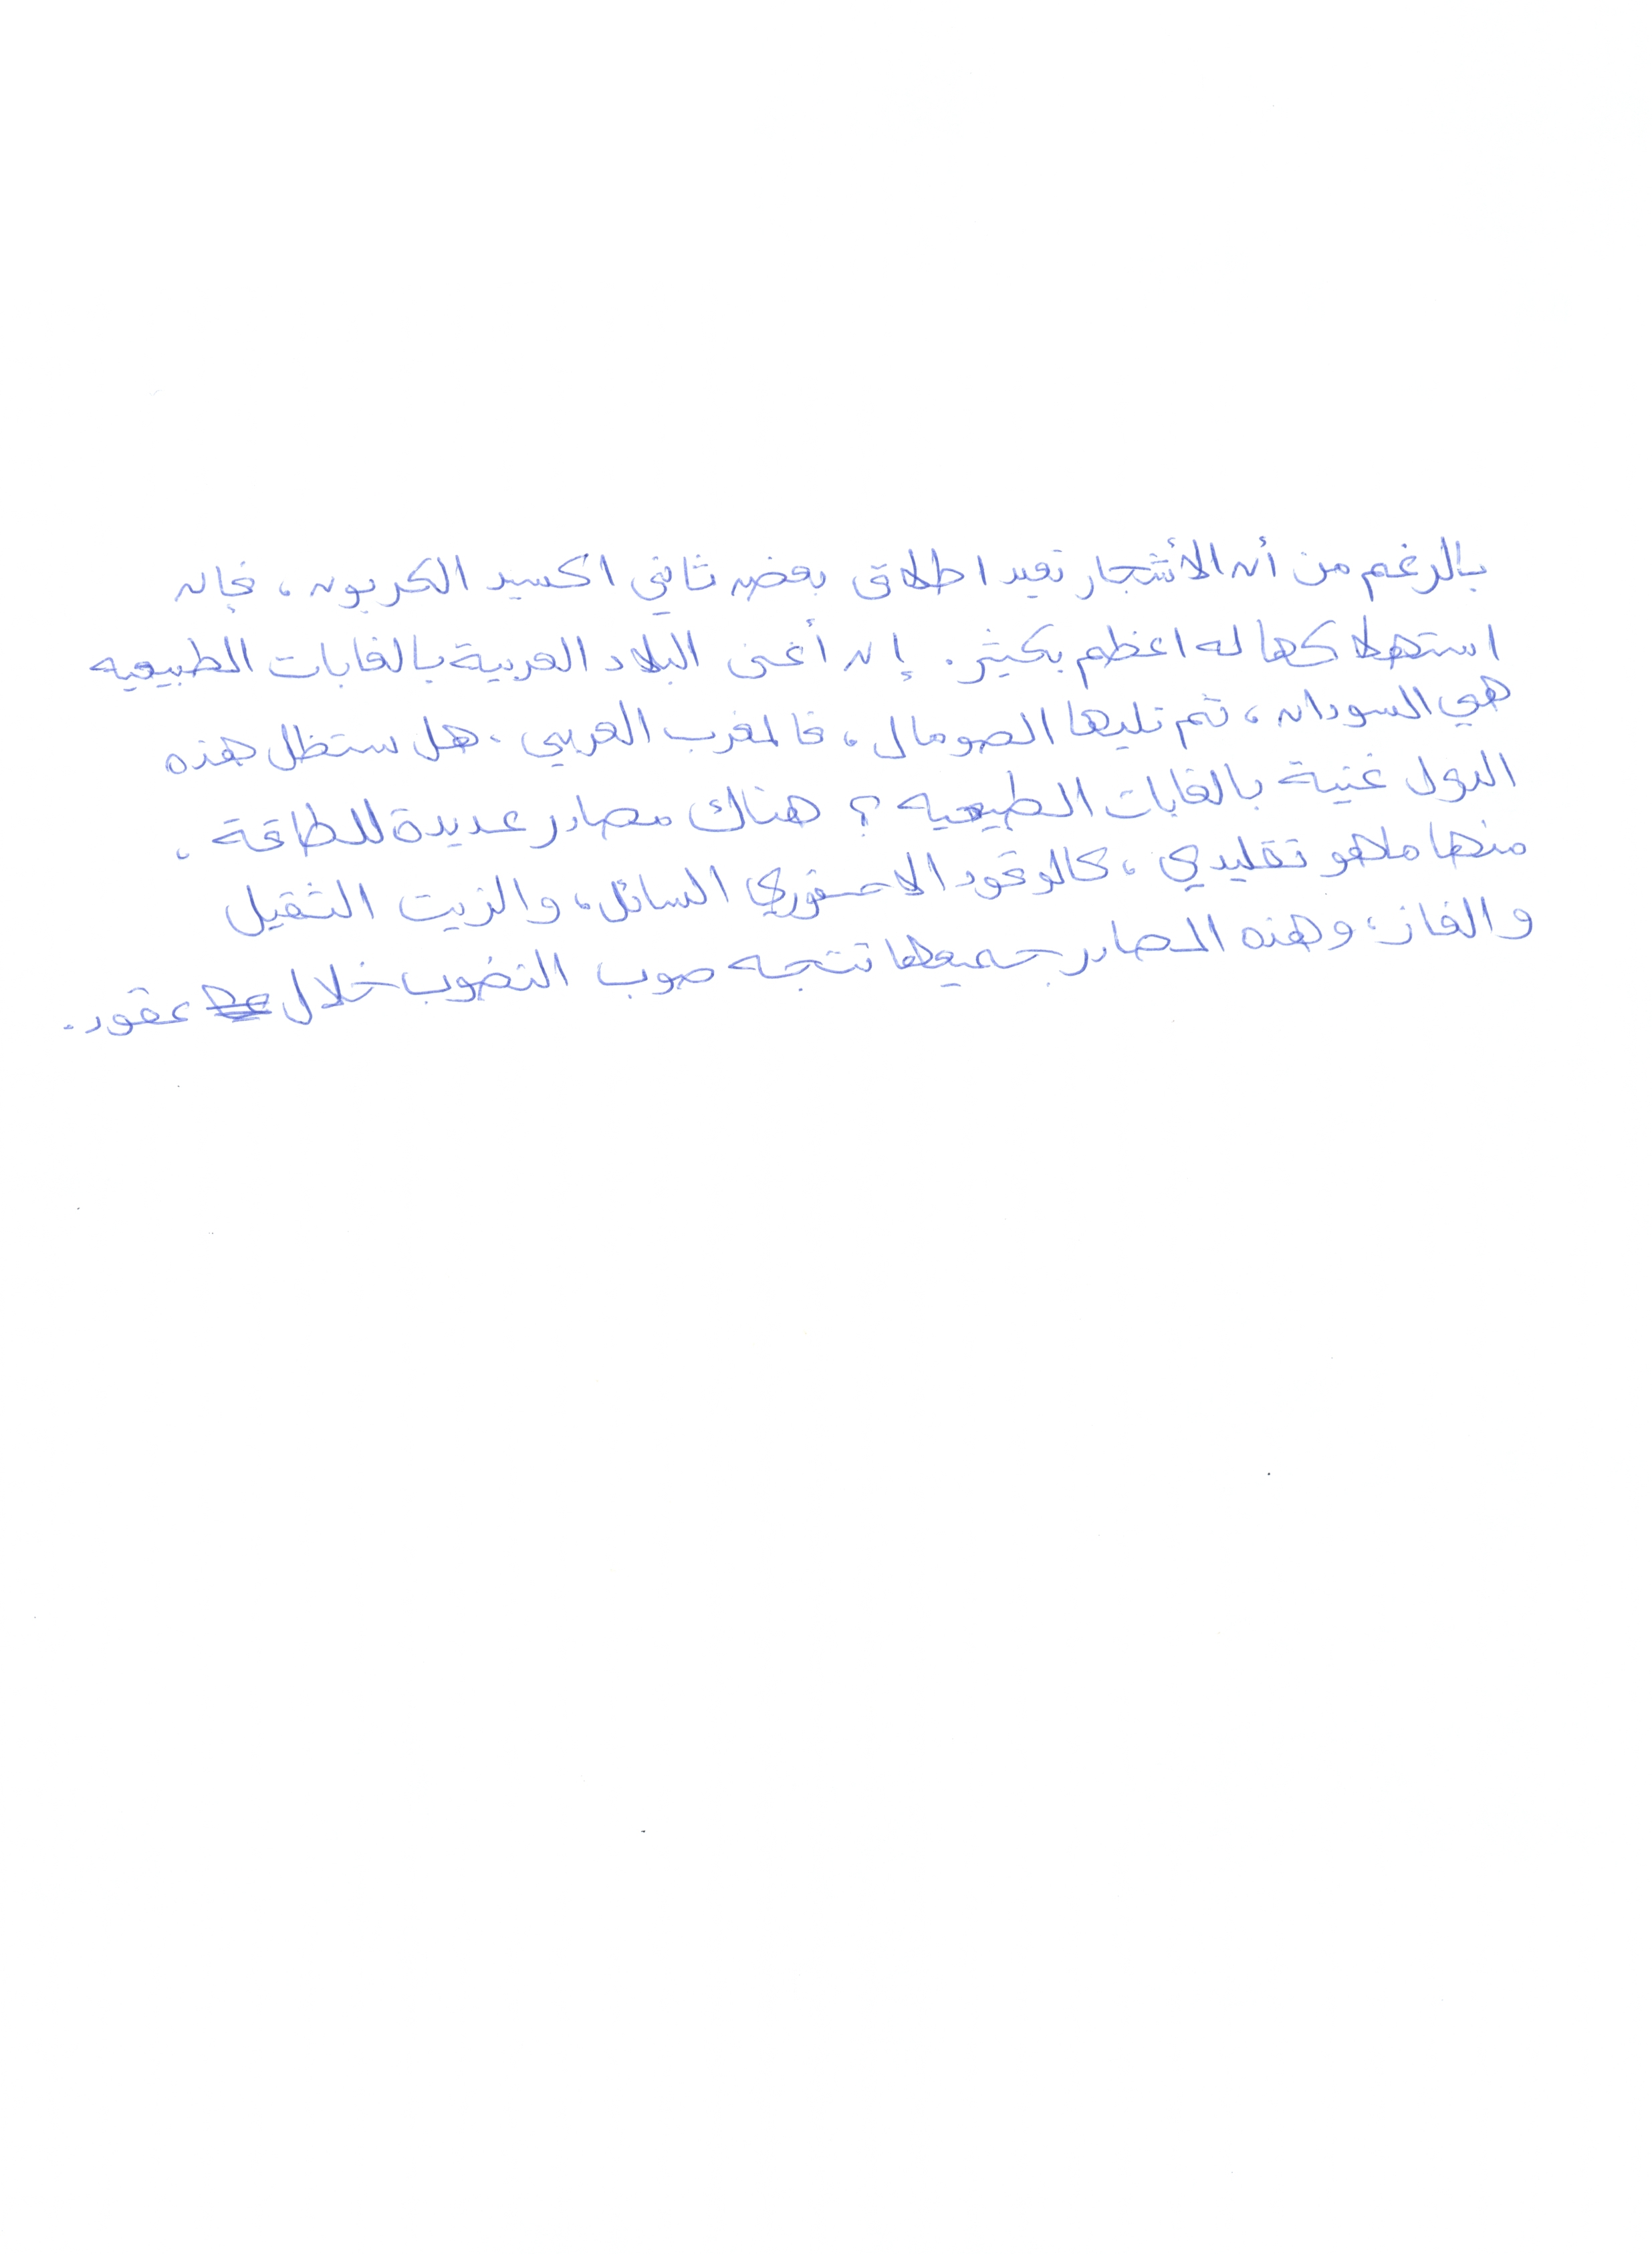 بالرغم من أن الأشجار تعيد اطلاق بعض ثاني اكسيد الكربون، فإن
استهلاكها له اعظم بكثير. إن أغنى البلاد العربية بالغابات الطبيعيه
هي السودان، ثم تليها الصومال، فالمغرب العربي. هل ستظل هذه
الدول غنية بالغابات الطبيعيه؟ هناك مصادر عديدة للطاقة،
منها ماهو تقليدي، كالوقود الاحفوري السائل، والزيت الثقيل
والغاز، وهذه المصادر جميعها تتجه صوب النضوب خلال عقود.